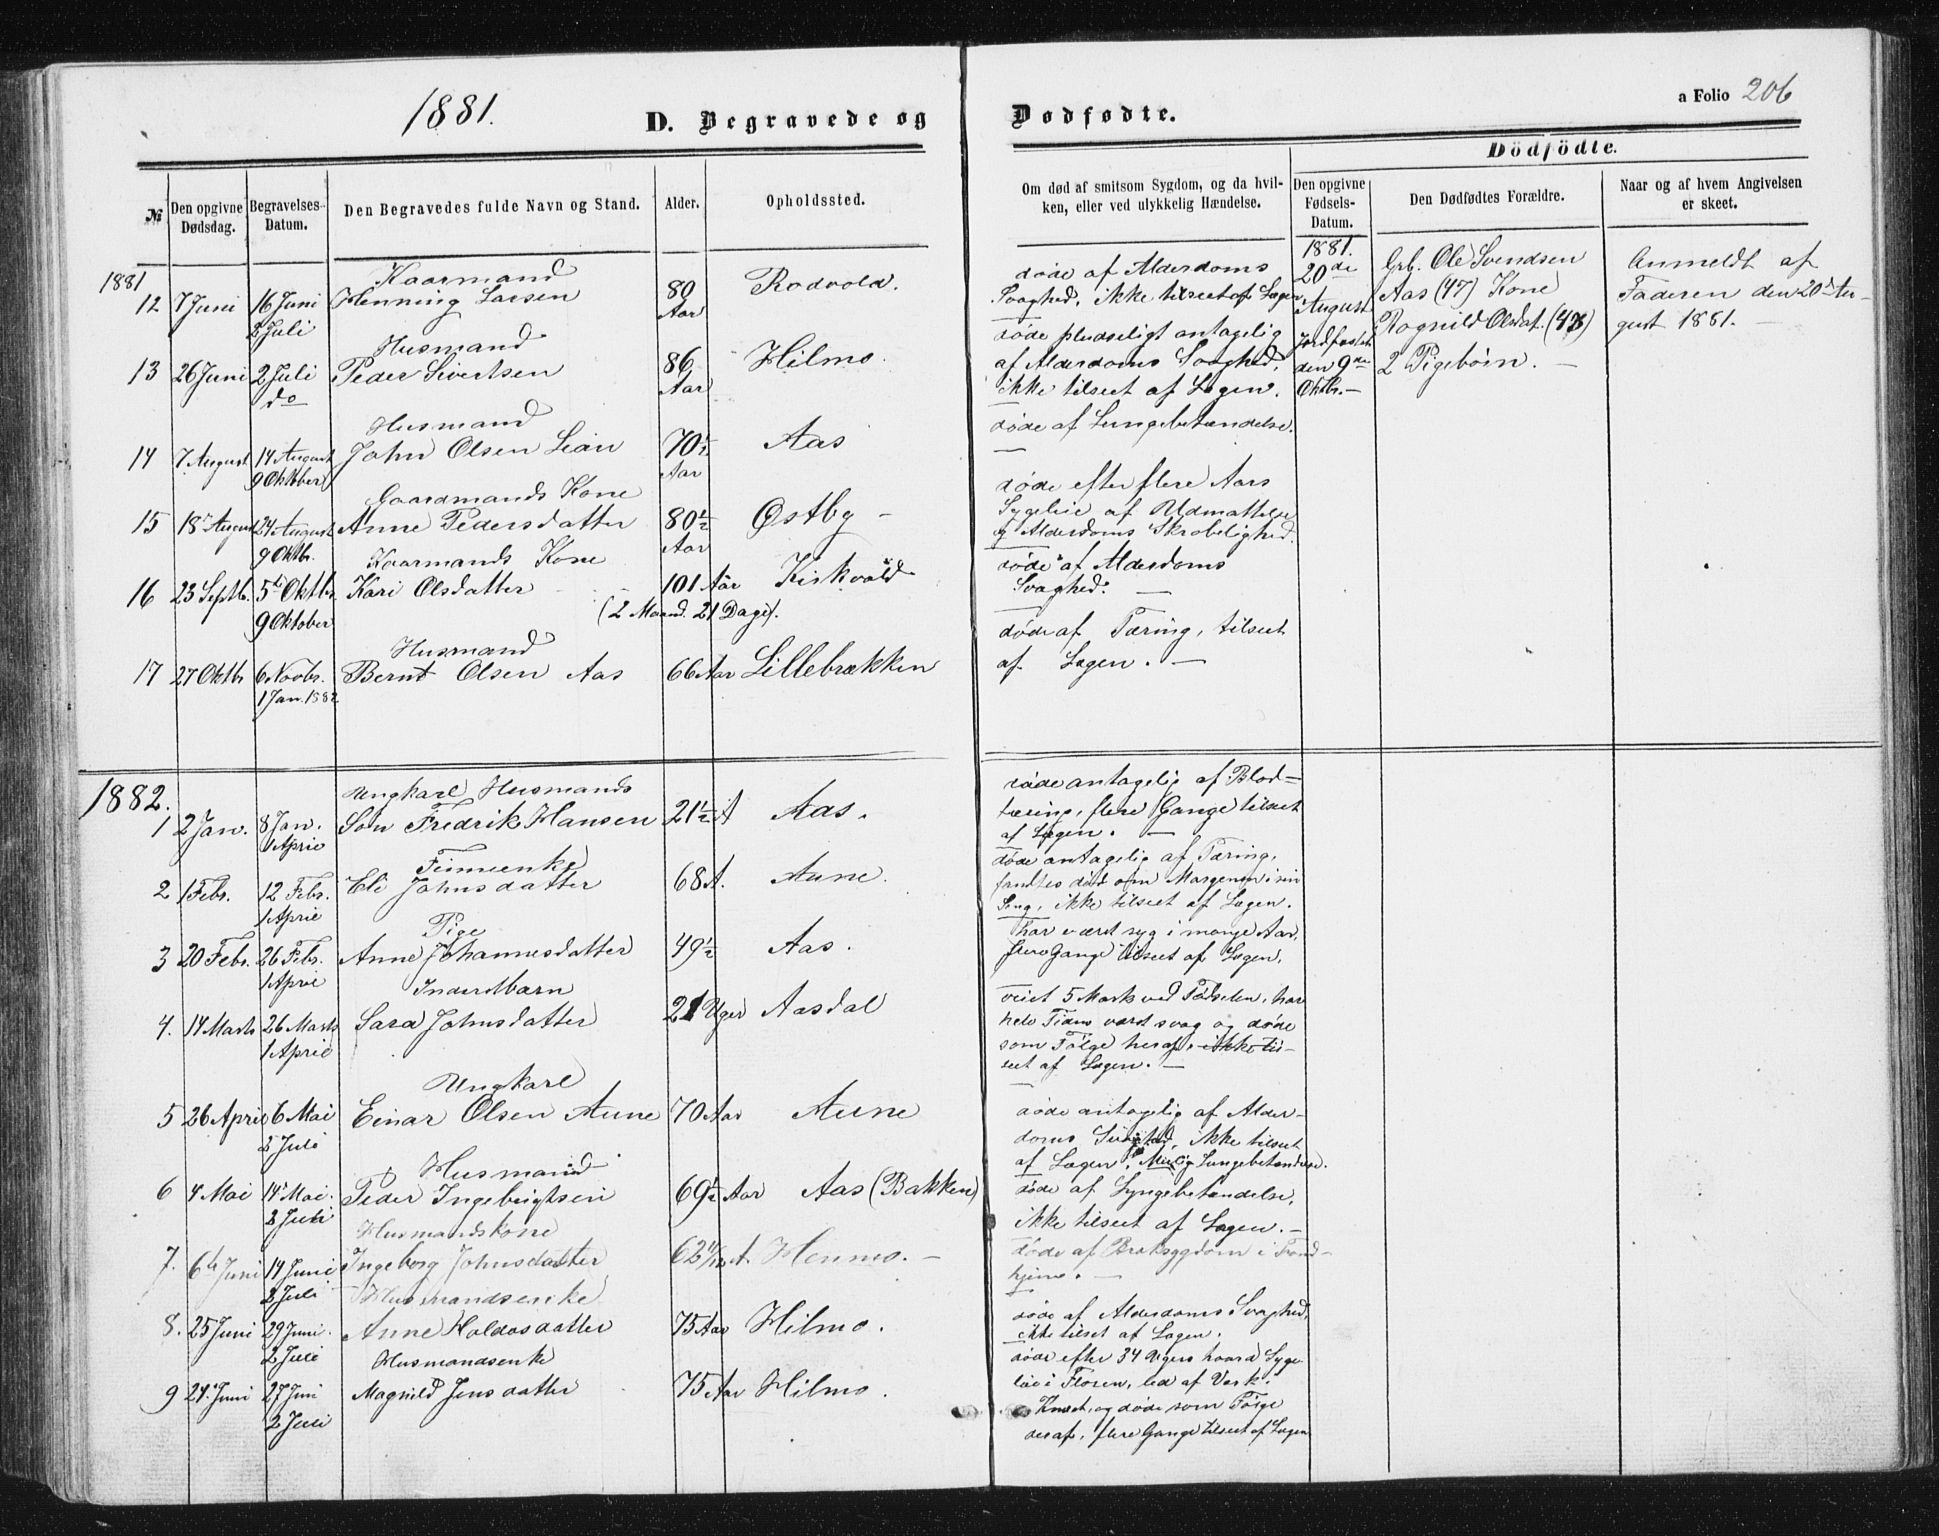 1881.
D. Begravede og Dødfødte.
a Folio 206
Dödfödte.
№
Den opgivne Dødsdag.
Begravelses-Datum.
Den Begravedes fulde Navn og Stand.
Alder.
Opholdssted.
Om død af smitsom Sygdom, og da hvilken, eller ved ulykkelig Hændelse.
Den opgivne Fødsels-Datum.
Den Dødfødtes Forældre.
Naar og af hvem Angivelsen er skeet.
1881
Kaarmand
12 7 Juni 16 Juni Henning Larsen 80 Aar Rodvold.
2 Juli
døde af Alderdoms
Svaghed, ikke tilseet af Lægen
1881.
20de
August
Jordfæstet
den 9de
Oktbr.—
Grb. Ole Svendsen
Aas (47) Kone
Ragnild Olsdat. (43)
2 Pigebørn. —
Anmeldt af
Faderen den 20de Au-
gust 1881. —
Husmand
13 26 Juni 2 Juli Peder Sivertsen 86 Aar Hilmo.
do
døde pludseligt antagelig
af Alderdoms Svaghed,
ikke tilseet af Lægen.
Husmand
14 7 August 14 August John Olsen Lian 70½ Aar Aas
9 Oktober
døde af Lungebetændelse.
—
Gaardmands Kone
15 18de August 24 August Anne Pedersdatter 80½ Aar Østby —
9 Oktbr.
døde efter flere Aars
Sygeleie af Udmattelse
og Alderdoms Skrøbelighed.
Kaarmands Kone
16 23 Septb. 5te Oktbr. Kari Olsdatter 101 Aar Kirkvold
9 Oktober (2 Maand. 21 Dage).
døde af Alderdoms
Svaghed. —
Husmand
17 27 Oktbr 6 Novbr. Bernt Olsen Aas 66 Aar Lillebrækken
1 Jan. 1882
døde af Tæring, tilseet
af Lægen. —
1882.
Ungkarl Husmands
1 2 Jan. 8 Jan. Søn Fredrik Hansen 21½ A Aas.
1 April
døde antagelig af Blod-
tæring, flere Gange tilseet
af Lægen. —
2 1 Febr. 12 Febr. Eli Johnsdatter 68 A. Aune.
1 April
døde antagelig af Tæring,
fandtes død om Morgenen i sin
Seng, ikke tilseet af Lægen.
Pige
3 20 Febr. 26 Febr. Anne Johannesdatter 49½ Aas.
1 April
har været syg i mange Aar,
flere Gange tilseet af Lægen.
Inderstbarn
4. 14 Marts 26 Marts Sara Johnsdatter 21 Uger Aasdal
1 April
veiet 5 Mark ved Fødselen, har
hele Tiden været svag og døde
som Følge heraf, ikke til-
seet af Lægen. —
Ungkarl
5 26 April 6 Mai Einar Olsen Aune 70 Aar Aune
2 Juli
døde antagelig af Alder-
doms Svaghed, ikke tilseet
af Lægen. Lungebetændelse.
Husmand
6 4 Mai 14de Mai. Peder Ingebrigtsen 69½ Aar Aas (Bakken)
2 Juli
døde af Lungebetændelse,
ikke tilseet af Lægen. —
Husmandskone
7. 6te Juni 14 Juni Ingeborg Johnsdatter 62 1/12 A. Henmo. —
2 Juli
døde af Broksygdom i Trond-
hjem. —
Husmandsenke
8. 25 Juni 29 Juni. Anne Haldosdatter 75 Aar Hilmo.
2 Juli
døde af Alderdoms Svaghed,
ikke tilseet af Lægen.
Husmandsenke
9 24. Juni 27 Juni Magnild Jensdatter 75 Aar Hilmo.
2 Juli
døde efter 34 Ugers haard Syge-
leie i Floren, led af Værk i
Knæet, og døde som Følge
deraf, flere Gange tilseet af Lægen